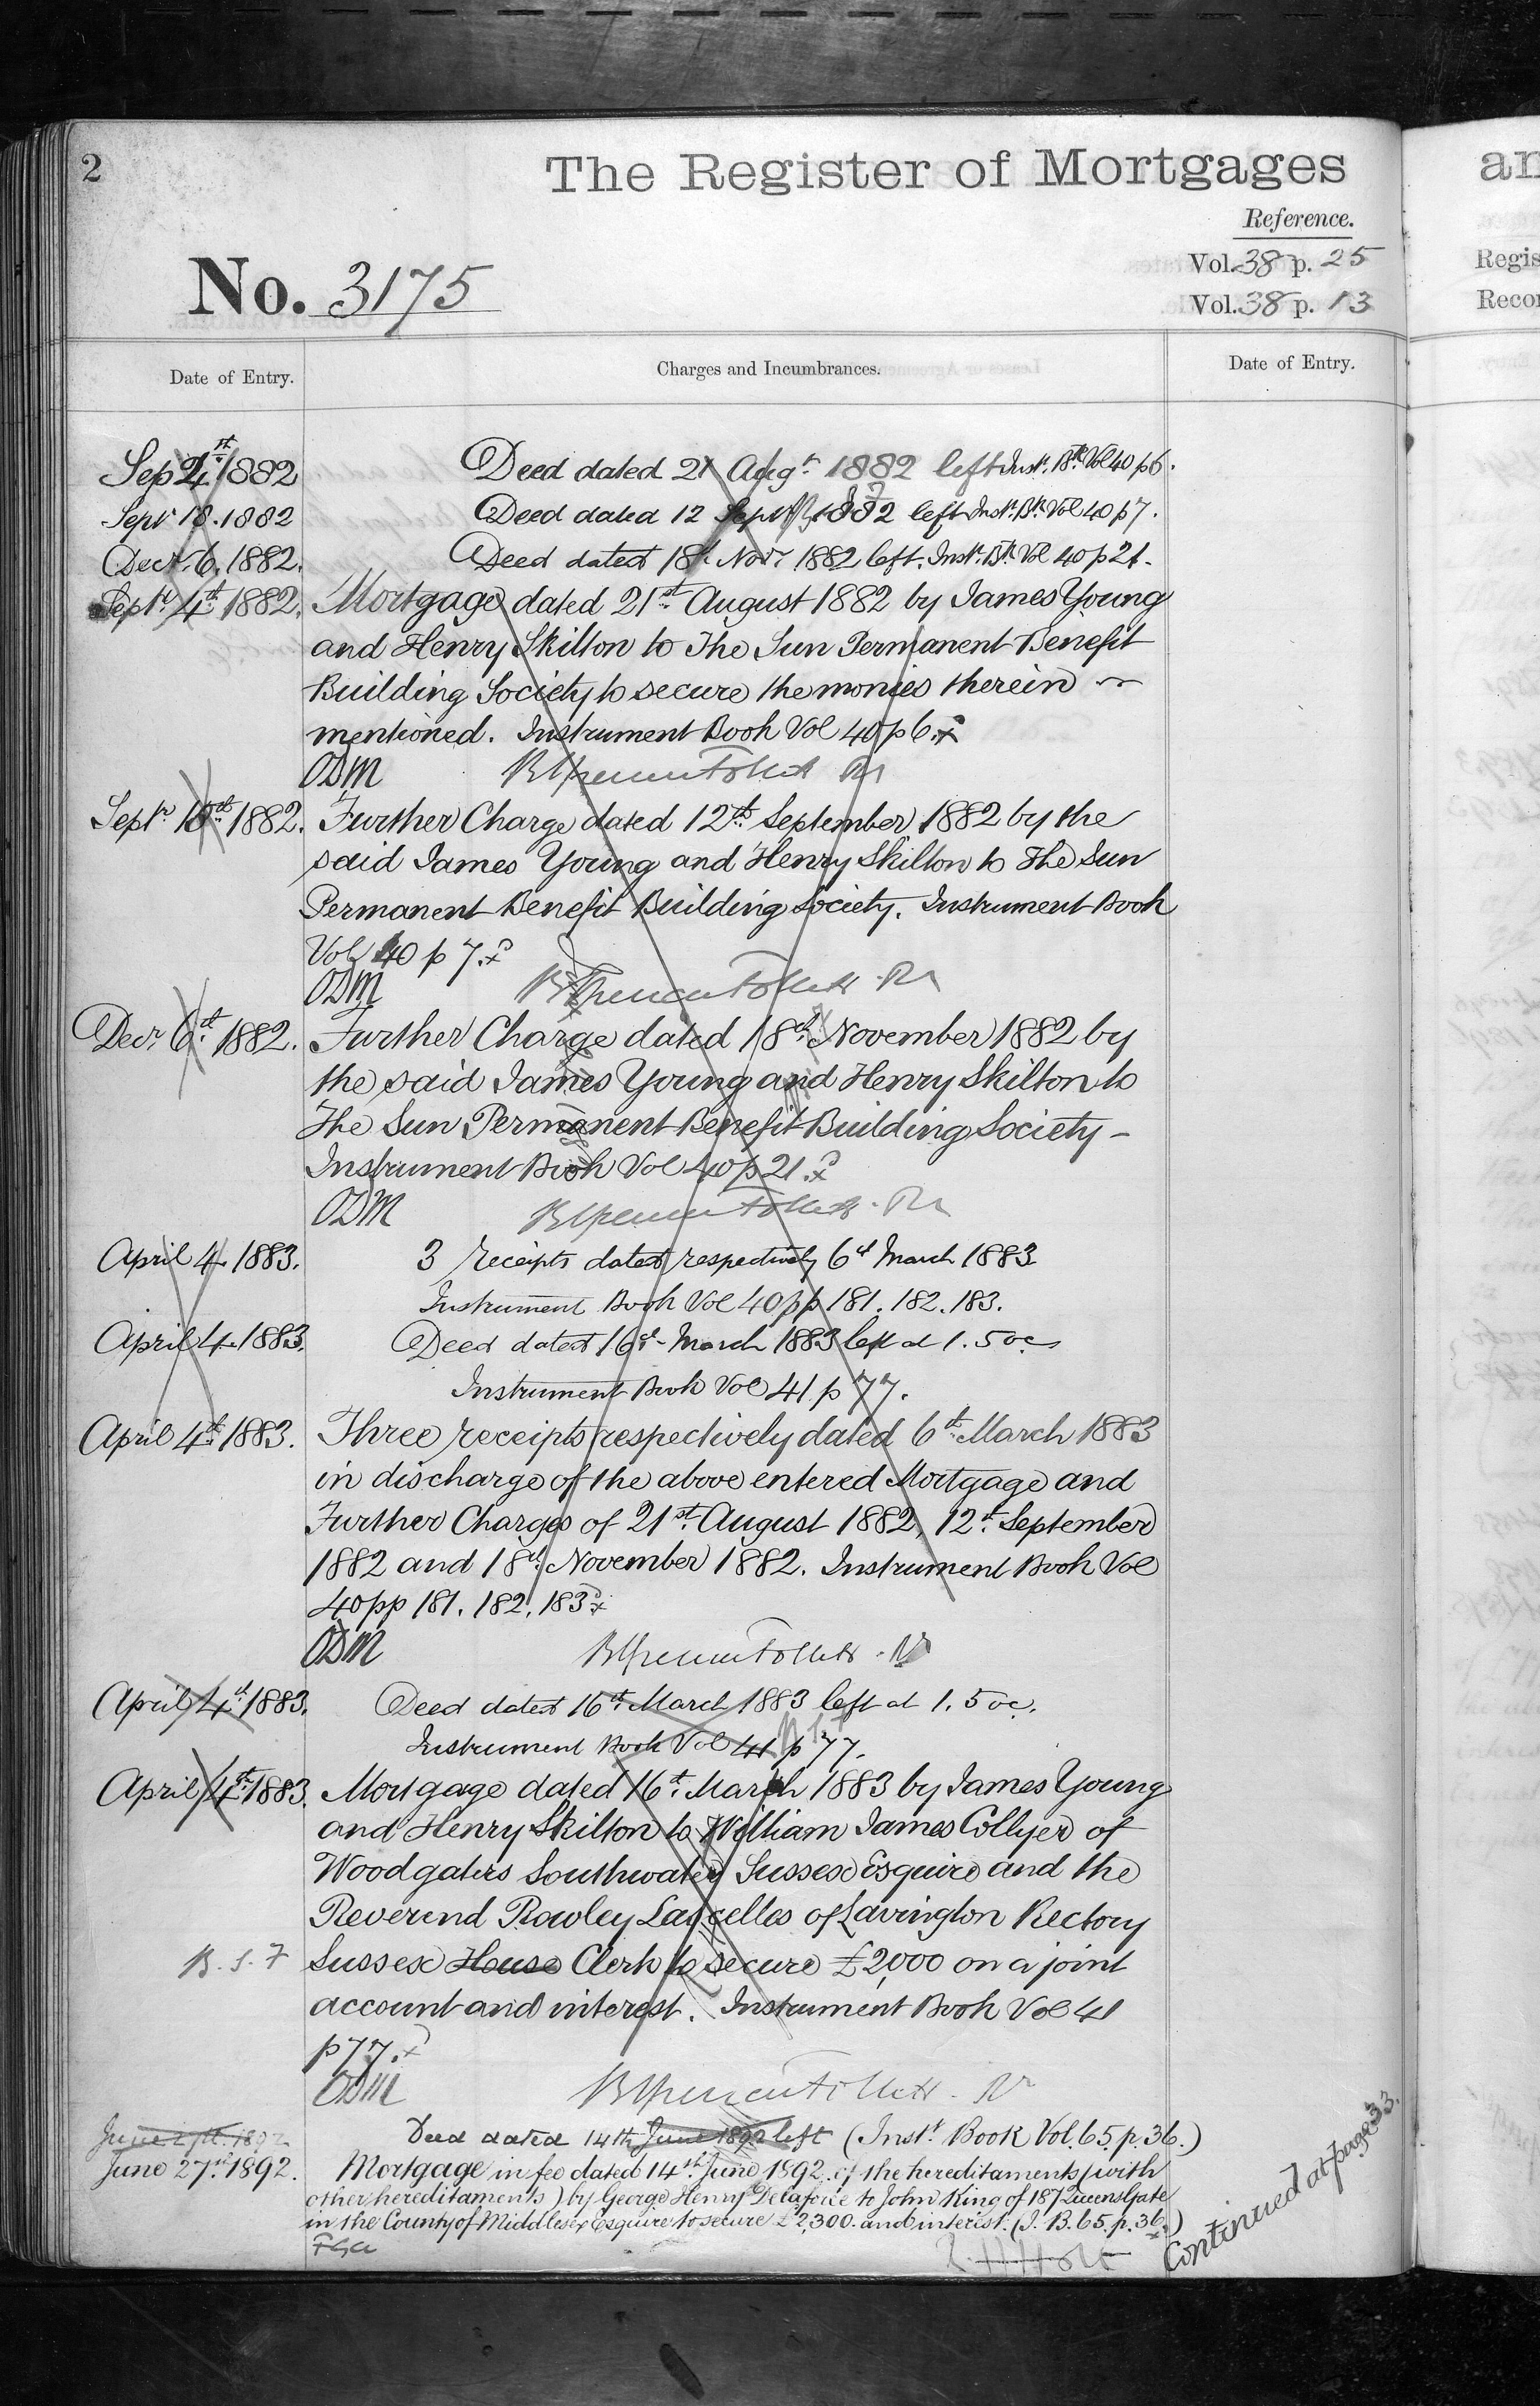 2
The Register of Mortgages
Reference.
Vol. 38 p. 25
No. 3175
Vol. 38 p. 13
Date of Entry.
Charges and Incumbrances.
Date of Entry.
Sep 4th 1882 Deed dated 21 Augt 1882 left Inst. Bk Vol 40 p 6.
Sepr 18. 1882 Deed dated 12 Sept 1882 left Inst. Bk. Vol 40 p 7.
Decr. 6. 1882. Deed dated 18th Novr 1882 left. Inst. Bk Vol 40 p 21.
Septr 4th 1882. Mortgage dated 21st August 1882 by James Young
and Henry Skilton to The Sun Permanent Benefit
Building Society to secure the monies therein
mentioned. Instrument Book Vol 40 p 6.
ODM
Septr 18th 1882. Further Charge dated 12th September 1882 by the
said James Young and Henry Skilton to The Sun
Permanent Benefit Building Society. Instrument Book
Vol 40 p 7.
ODM
Decr 6th 1882. Further Charge dated 18th November 1882 by
the said James Young and Henry Skilton to
The Sun Permanent Benefit Building Society -
Instrument Book Vol 40 p 21.
ODM
April 4. 1883. 3 receipts dated respectively 6th March 1883
Instrument Book Vol 40 pp 181. 182. 183.
April 4. 1883. Deed dated 16th March 1883 left at 1.5 oc
Instrument Book Vol 41 p 77.
April 4th 1883. Three receipts respectively dated 6th March 1883
in discharge of the above entered Mortgage and
Further Charges of 21st August 1882, 12th September
1882 and 18th November 1882. Instrument Book Vol
40 pp 181. 182. 183
ODM
April 4th 1883. Deed dated 16th March 1883 left at 1.5 oc.
Instrument Book Vol 41 p 77.
April 4th 1883. Mortgage dated 16th March 1883 by James Young
and Henry Skilton to William James Collyer of
Woodgates Southwater Sussex Esquire and the
Reverend Rowley Lascelles of Lavington Rectory
B. S. F Sussex House Clerk to secure £2,000 on a joint
account and interest. Instrument Book Vol 41
p 77.
ODM
June 27th. 1892 Deed dated 14th June 1892 left (Inst. Book Vol. 65. p. 36.)
June 27th 1892. Mortgage in fee dated 14th June 1892. of the hereditaments (with
other hereditaments) by George Henry Delaforce to John King of 187 Queens Gate
in the County of Middlesex Esquire to secure £2,300. and interest. (I. B. 65. p. 36.)
Continued at page 33.
an
Regis
Recor